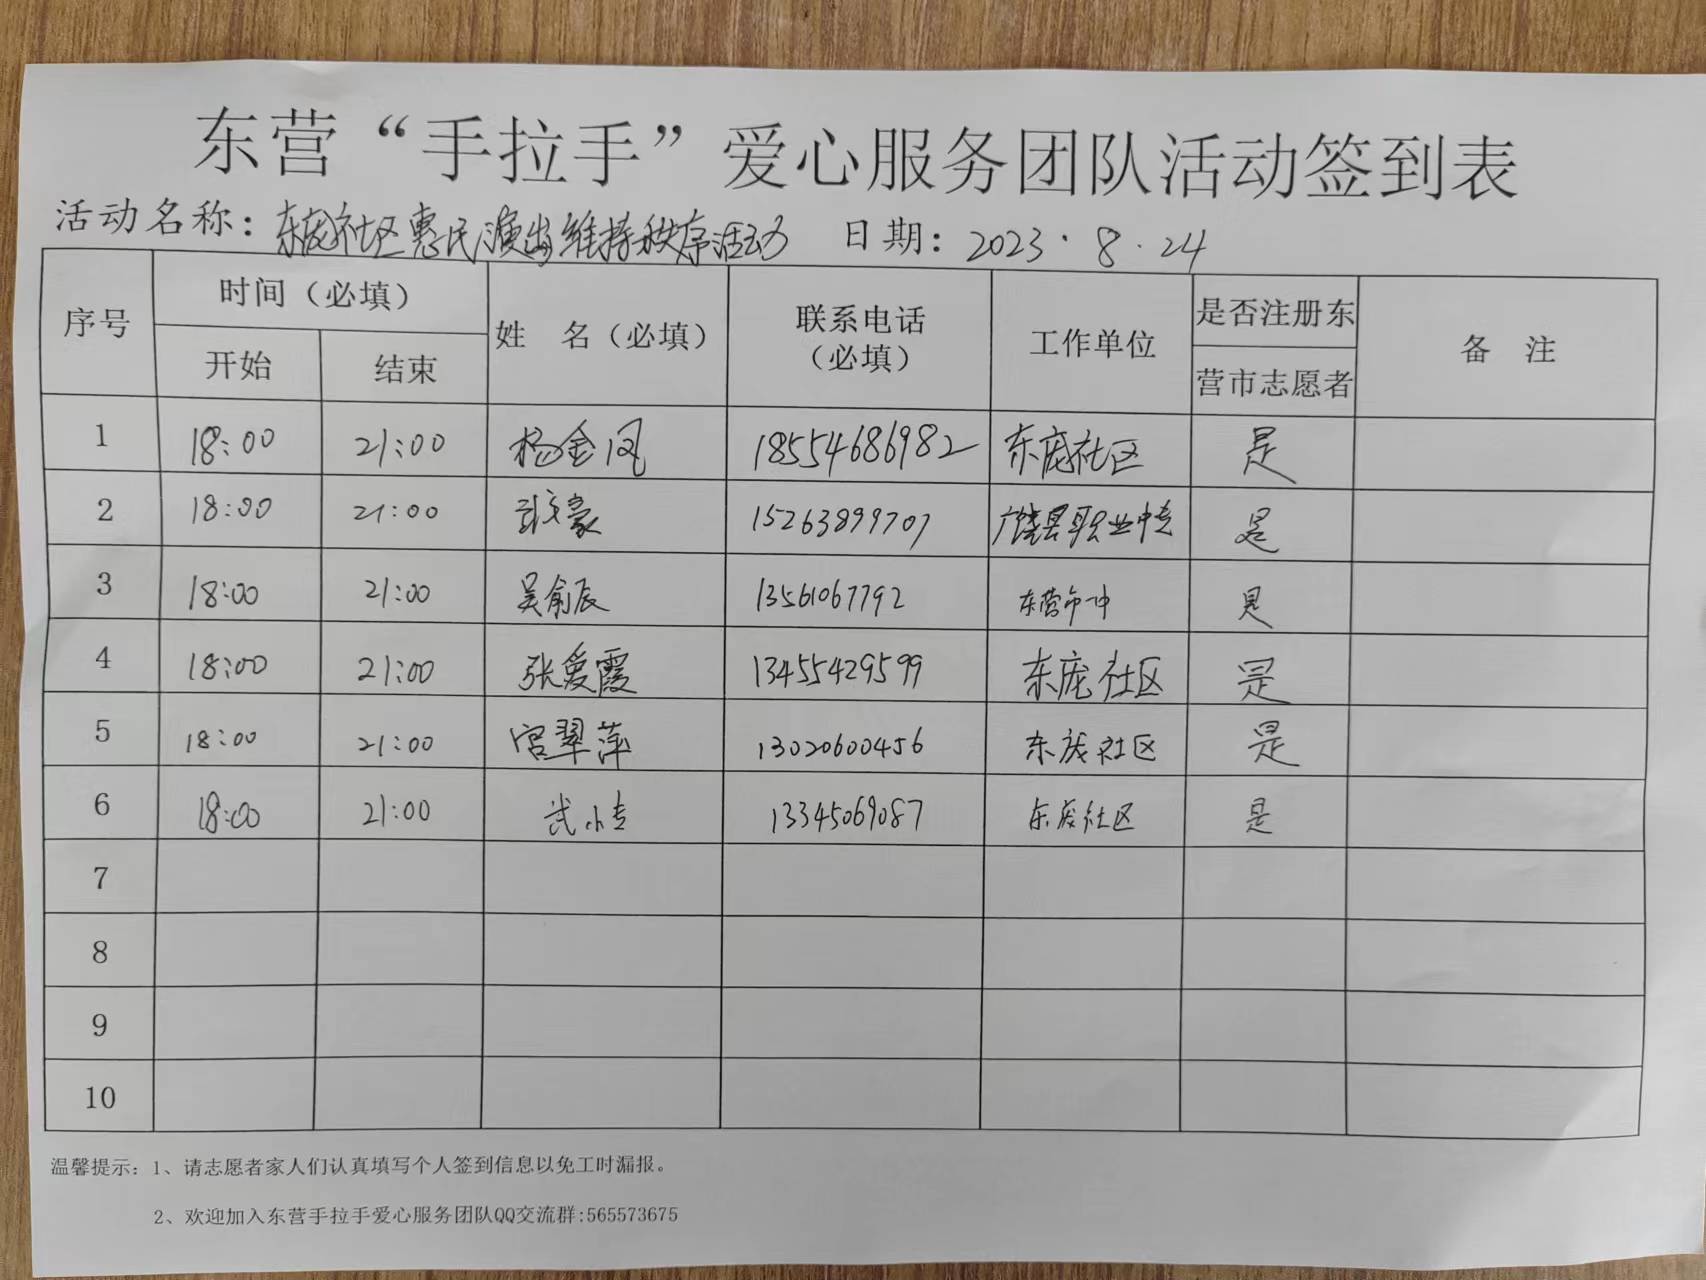 东营“手拉手”爱心服务团队活动签到表
活动名称：东庞社区惠民演出维持秩序活动 日期：2023.8.24
序号 时间（必填） 姓 名（必填） 联系电话（必填） 工作单位 是否注册东营市志愿者 备 注
开始 结束
1 18:00 21:00 杨金凤 18554686982 东庞社区 是
2 18:00 21:00 豪 15263899707 广饶县职业中专 是
3 18:00 21:00 吴俞辰 13561067792 东营市一中 是
4 18:00 21:00 张爱霞 13455429599 东庞社区 是
5 18:00 21:00 宫翠萍 13020600456 东庞社区 是
6 18:00 21:00 武小 13345069087 东庞社区 是
7
8
9
10
温馨提示：1、请志愿者家人们认真填写个人签到信息以免工时漏报。
2、欢迎加入东营手拉手爱心服务团队QQ交流群:565573675